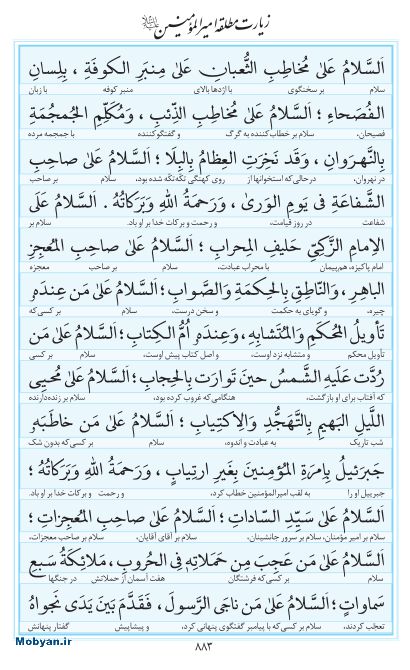 زیارت مطلقه امیرالمؤمنین علیه‌السلام
اَلسَّلامُ عَلیٰ مُخاطِبِ الثُّعبانِ عَلیٰ مِنبَرِ الکوفَةِ ، بِلِسانِ
سلام بر سخنگوی با اژدها بالای منبر کوفه با زبان
الفُصَحاءِ ؛ اَلسَّلامُ عَلیٰ مُخاطِبِ الذِّئبِ ، وَمُکَلِّمِ الجُمجُمَةِ
فصیحان. سلام بر خطاب‌کننده به گرگ و گفتگوکننده با جمجمه مرده
بِالنَّهرَوانِ ، وَقَد نَخِرَتِ العِظامُ بِالبِلا ؛ اَلسَّلامُ عَلیٰ صاحِبِ
در نهروان، در حالی‌که استخوانها از روی کهنگی تکّه‌تکّه شده بود. سلام بر صاحب
الشَّفاعَةِ فی یَومِ الوَریٰ ، وَرَحمَةُ اللهِ وَبَرَکاتُهُ . اَلسَّلامُ عَلَی
شفاعت در روز قیامت، و رحمت و برکات خدا بر او باد. سلام بر
الاِمامِ الزَّکِیِّ حَلیفِ المِحرابِ ؛ اَلسَّلامُ عَلیٰ صاحِبِ المُعجِزِ
امام پاکیزه، هم‌پیمان با محراب عبادت، سلام بر صاحب معجزه
الباهِرِ ، وَالنّاطِقِ بِالحِکمَةِ وَالصَّوابِ ؛ اَلسَّلامُ عَلیٰ مَن عِندَهو
چیره، و گویای به حکمت و سخن درست، سلام بر کسی که
تَأویلُ المُحکَمِ وَالمُتَشابِهِ ، وَعِندَهو اُمُّ الکِتابِ ؛ اَلسَّلامُ عَلیٰ مَن
تأویل محکم و متشابه نزد اوست، و اصل کتاب پیش اوست، سلام بر کسی
رُدَّت عَلَیهِ الشَّمسُ حینَ تَوارَت بِالحِجابِ ؛ اَلسَّلامُ عَلیٰ مُحیِی
که آفتاب برای او بازگشت، هنگامی‌که غروب کرده بود، سلام بر زنده‌دارنده
اللَّیلِ البَهیمِ بِالتَّهَجُّدِ وَالاِکتِیابِ ؛ اَلسَّلامُ عَلیٰ مَن خاطَبَهو
شب تاریک به عبادت و اندوه، سلام بر کسی‌که بدون شک
جَبرَئیلُ بِاِمرَةِ المُؤمِنینَ بِغَیرِ ارتِیابٍ ، وَرَحمَةُ اللهِ وَبَرَکاتُهُ ؛
جبرییل او را به لقب امیرالمؤمنین خطاب کرد، و رحمت و برکات خدا بر او باد.
اَلسَّلامُ عَلیٰ سَیِّدِ السّاداتِ ؛ اَلسَّلامُ عَلیٰ صاحِبِ المُعجِزاتِ ؛
سلام بر امیر مؤمنان، سلام بر سرور جانشینان، سلام بر آقای آقایان، سلام بر صاحب معجزات،
اَلسَّلامُ عَلیٰ مَن عَجِبَ مِن حَمَلاتِهی فِی الحُروبِ ، مَلائِکَةُ سَبعِ
سلام بر کسی که فرشتگان هفت آسمان از حملاتش در جنگها
سَماواتٍ ؛ اَلسَّلامُ عَلیٰ مَن ناجَی الرَّسولَ ، فَقَدَّمَ بَینَ یَدَی نَجواهُ
تعجّب کردند، سلام بر کسی‌که با پیامبر گفتگوی پنهانی کرد، و پیشاپیش گفتار پنهانش
۸۸۳
Mobyan.ir